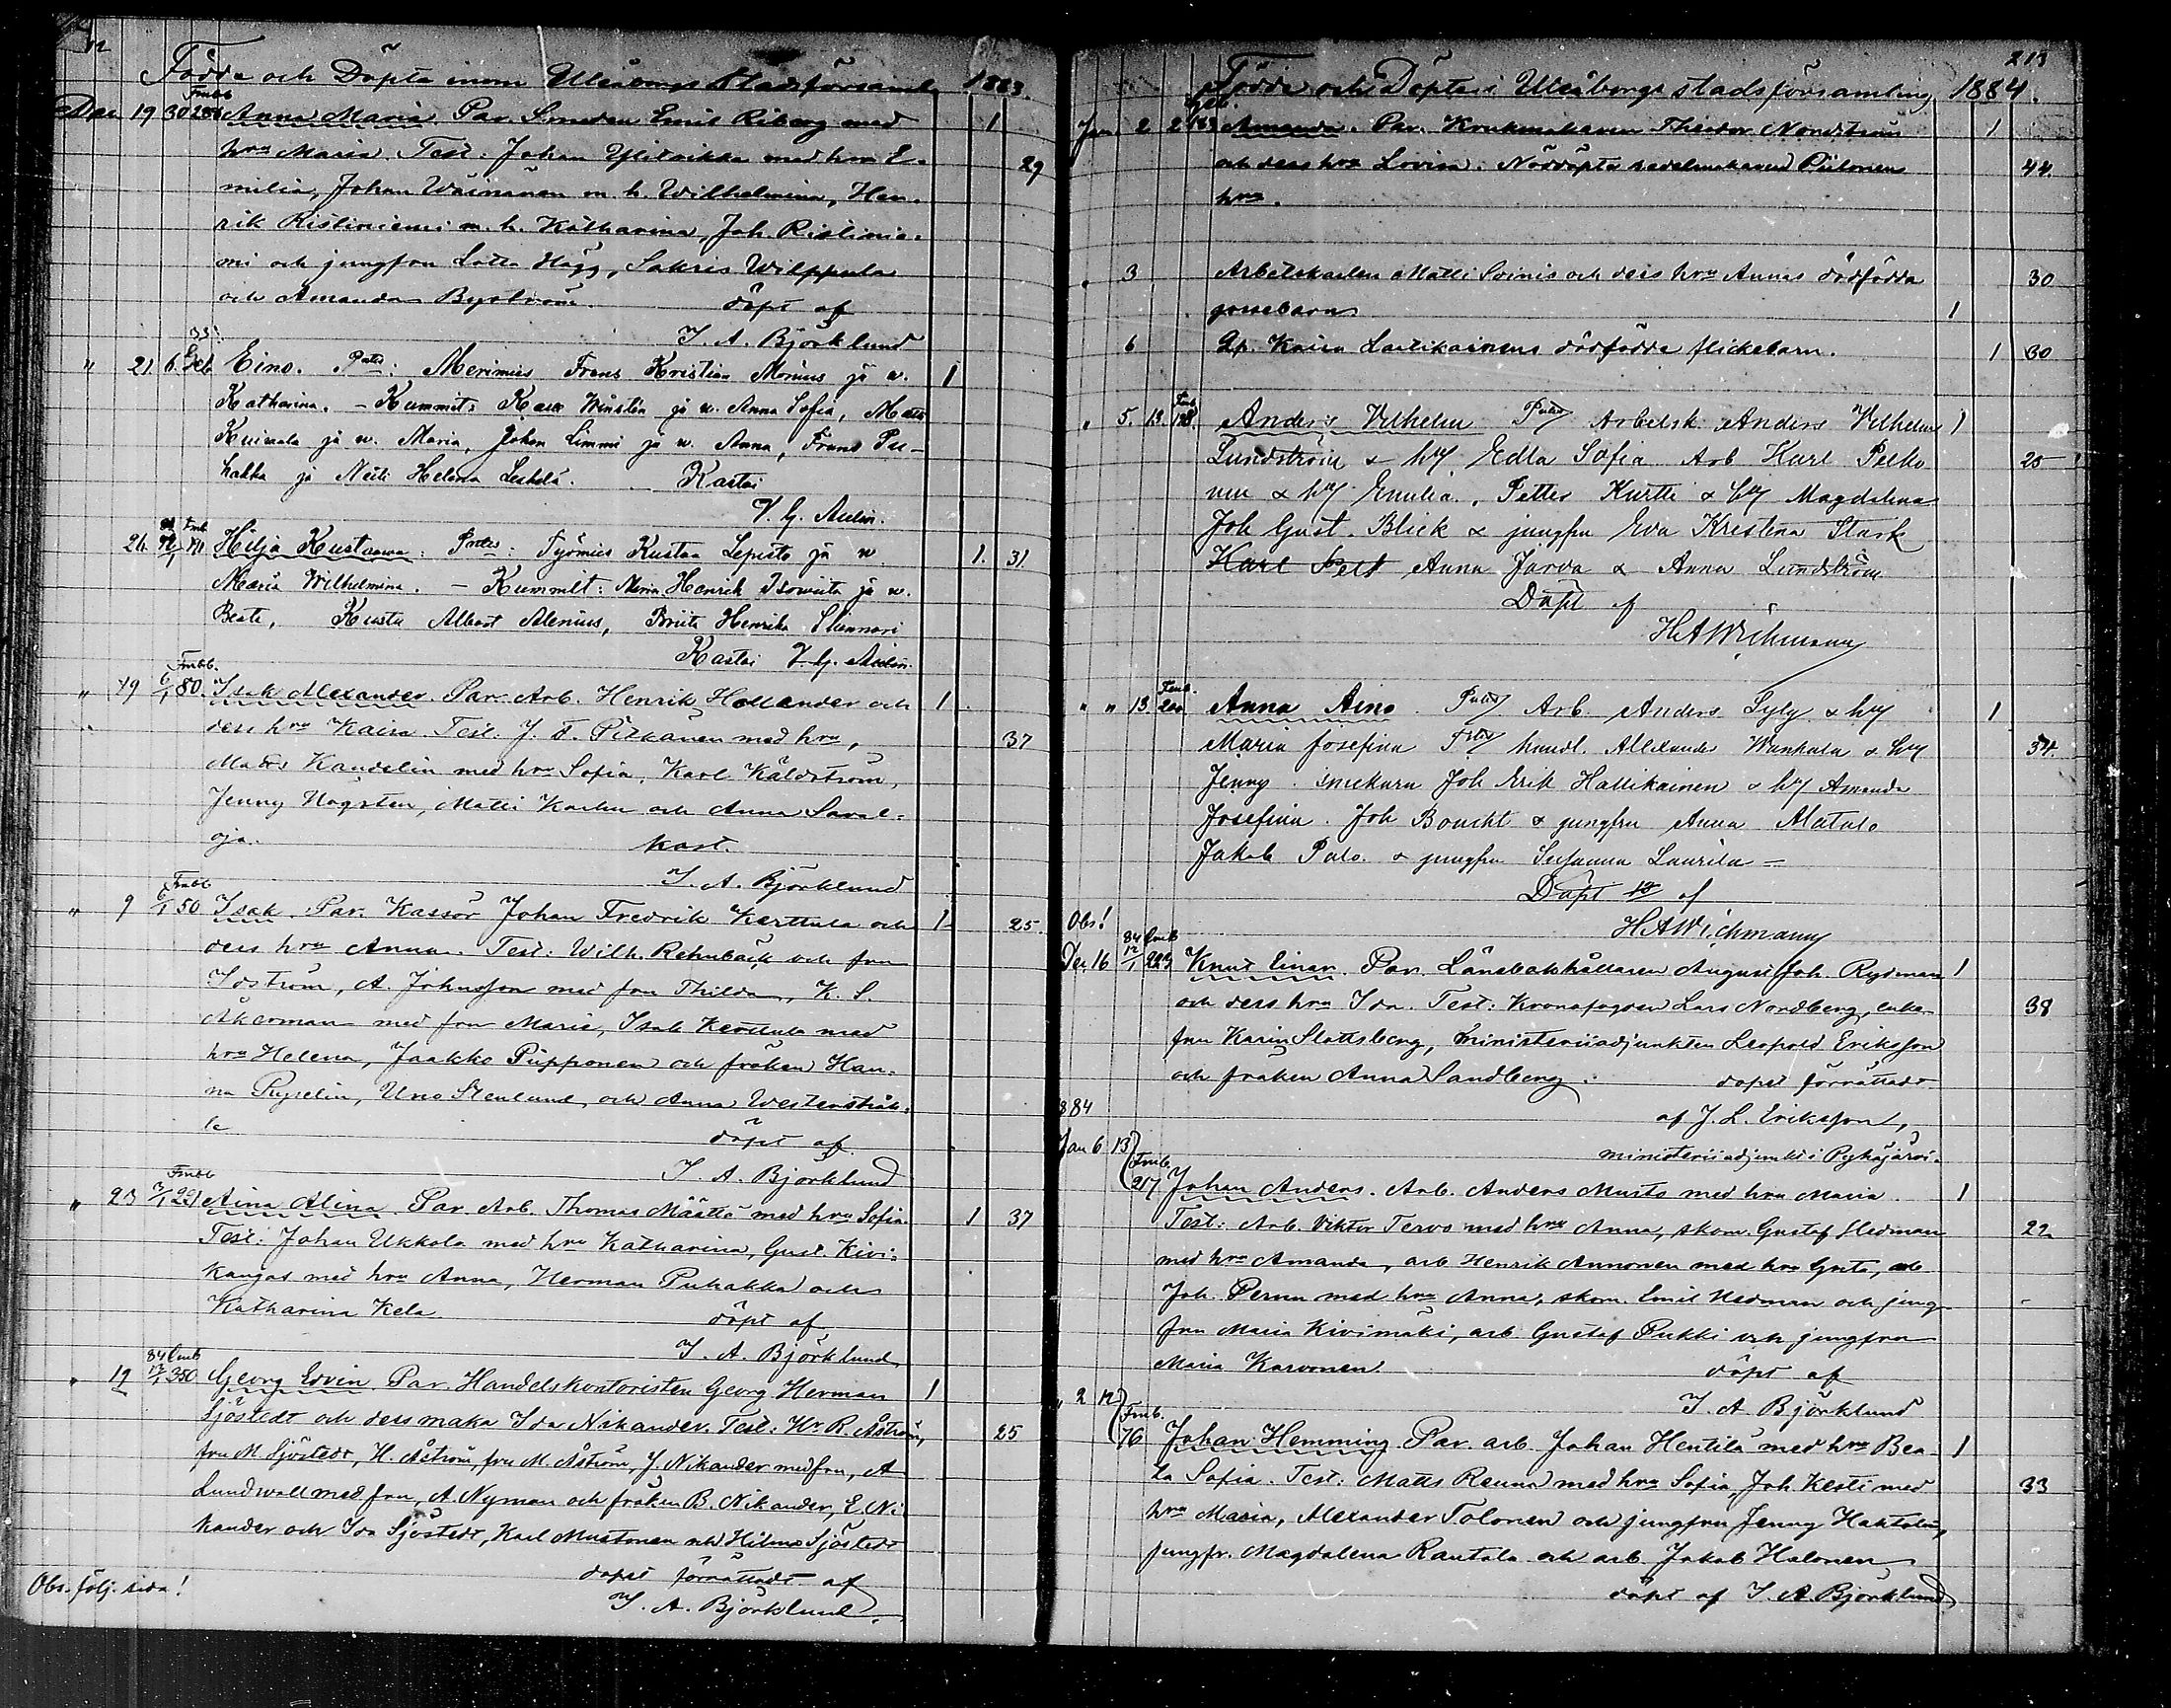 12
Födde och Döpta inom Uleåborgs Stadsförsaml. 1883.
Fmbb
Dec 19 30 Anna Maria. Par. Smeden Emil Riberg med 1
hru Maria. Test: Johan Ylitaikka med hru E- 29
milia, Johan Wäinänen m. h. Wilhelmina, Hen-
rik Ristiniemi m. h. Katharina, Joh. Ristinie-
mi och jungfru Lotta Hägg, Sakris Wilppula
och Amanda Byström. döpt af
I. A. Björklund
" 21 6. Geb Eino. Pater: Merimies Frans Kristian Monius ja w. 1
Katharina. – Kummit: Winsten ja w. Anna Sofia, Matts
ja w. Maria, Johan Limmi ja w. Anna, Frans Pu-
hakka ja Neiti Helena Leskelä. Kastoi
V. G. Aulin.
26 Hilja Kustaava: Pater: Työmies Kustaa Lepistö ja w 1. 31
Maria Wilhelmina. – Kummit: Henrik ja w.
Beata, Kusta Albert Alenius, Briita Henrika
Kastoi V. G. Aulin.
Fmbb.
" 19 6/1 80. Isak Alexander. Par. Arb. Henrik Hollander och 1
dess hru Kaisa. Test. J. F. Pitkänen med hru, 37
Matts Kandelin med hru Sofia, Karl Käldström,
Jenny Högsten, Matti Karhu och Anna Saval-
oja. kast.
I. A. Björklund
Fmbb
" 9 6/1 50 Isak. Par. Kassör Johan Fredrik Karttula och 1 25.
dess hru Anna. Test: Wilh. Rehnbäck och fru
Idström, A. Johnsson med fru Thilda, K. S.
Åkerman med fru Maria, Isak Karttula med
hru Helena, Jaakko Piipponen och fröken Han-
na Ryselin, Uno Stenlund, och Anna Westerstråh-
le döpt af
I. A. Björklund
Fmbb
" 23 7/1 221 Aina Alina. Par. Arb. Thomas Määttä med hru Sofia 1 37
Test: Johan Ukkola med hru Katharina, Gust. Kivi-
kangas med hru Anna, Herman Puhakka och
Katharina Kela döpt af
I. A. Björklund
84
" 12 12/1 350 Georg Edvin. Par. Handelskontoristen Georg Herman 1
Sjöstedt och dess maka Ida Nikander. Test: Hr. R. Åström, 25
fru M. Sjöstedt, H. Åström, fru M. Åström, J. Nikander med fru, A
Lundwall med fru, A. Nyman och fröken B. Nikander, E. Ni-
kander och Ida Sjöstedt, Karl Mustonen och Hilma Sjöstedt
dopet förrättadt af
I. A. Björklund
Obs. följ. sida!
213
Födde och Döpta i Uleåborgs stadsförsamling 1884.
Geb.
Jan 2 2 Amanda. Par. Krukmakaren Theodor Nordström 1
och dess hru Lovisa. Nöddöpta sadelmakaren Piilonens 44.
hru.
" 3 Arbetskarlen Matti Soinis och dess hru Annas dödfödda 30
gossebarn 1
6 Qp. Kaisa Lartikainens dödfödda flickebarn. 1 30
Fmb
" 5. 13. 128. Anders Vilhelm Pater Arbetsk. Anders Vilhelm 1
Lundström & hru Edla Sofia Arb Karl Pelko 25
nen & hru Emilia. Petter Kurtti & hru Magdalena
Joh Gust. Blick & jungfru Eva Kristina Stark
Karl Pelt Anna Jarva & Anna Lundström
Döpt af
H A Wichmann
Fmb.
" " 13. 200 Anna Aino. Pater Arb. Anders Tyly & hru 1
Maria Josefina Test handl. Alexander Wanhala & hru 34.
Jenny. snickarn Joh Erik Hallikainen & hru Amanda
Josefina. Joh Boucht & jungfru Anna Matalo
Jakob Palo & jungfru Susanna Laurila –
Döpt af
Obs! H A Wichmann
84
Dec 16 12/1 223 Knut Einar. Par. Länsbokhållaren August Joh. Rydman 1
och dess hru Ida. Test: Kronofogden Lars Nordberg, enke- 38
fru Karin Slottsberg, Ministeriiadjunkten Leopold Eriksson
och fröken Anna Sandberg. dopet förrättadt
884 af J. L. Eriksson,
Jan 6 13 ministeriiadjunkt i Pyhäjärvi.
Fmb.
217 Johan Anders. Arb. Anders Musto med hru Maria. 1
Test: Arb. Viktor Tervo med hru Anna, skom. Gustaf Hedman 22
med hru Amanda, arb Henrik Annonen med hru Greta, arb
Joh. Perun med hru Anna, skom. Emil Hedman och jung-
fru Maria Kivimäki, arb. Gustaf Pukki och jungfru
Maria Karvonen. döpt af
" 2 12 I. A. Björklund
Fmb.
76 Johan Hemming. Par. arb. Johan Hentilä med hru Bea- 1
ta Sofia. Test: Matts Reuna med hru Sofia, Joh. Kesti med 33
hru Maria, Alexander Tolonen och jungfru Jenny Hakkola,
jungfr. Magdalena Rautala och arb. Jakob Halonen
döpt af I. A. Björklund